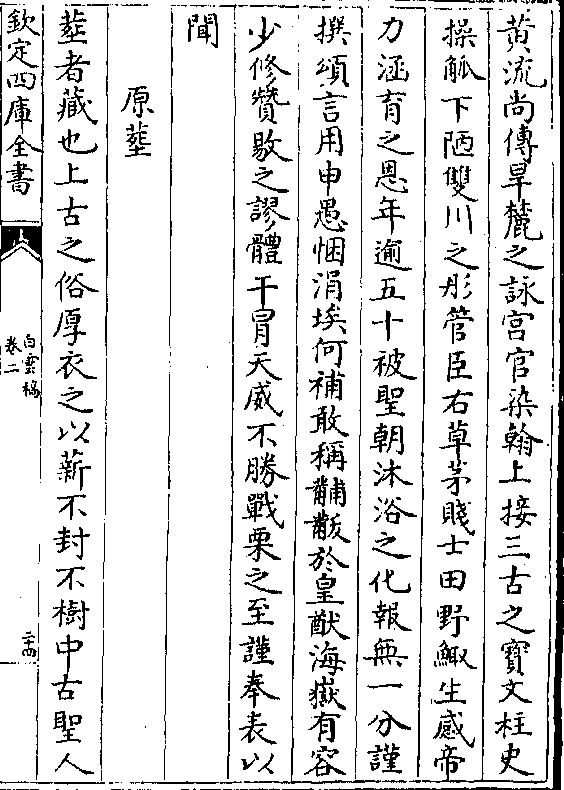 黄流尚傳旱麓之詠宮官染翰上接三古之寳文柱史
操觚下陋雙川之彤管臣右草茅賤士田野鯫生感帝
力涵育之恩年逾五十被聖朝沐浴之化報無一分謹
撰頌言用申愚悃涓埃何補敢稱黼黻於皇猷海嶽有容
少修贊敭之謬體干冐天威不勝戰栗之至謹奉表以
聞
原塟
塟者藏也上古之俗厚衣之以薪不封不樹中古聖人
欽定四庫全書
白雲稿
卷二
二十四